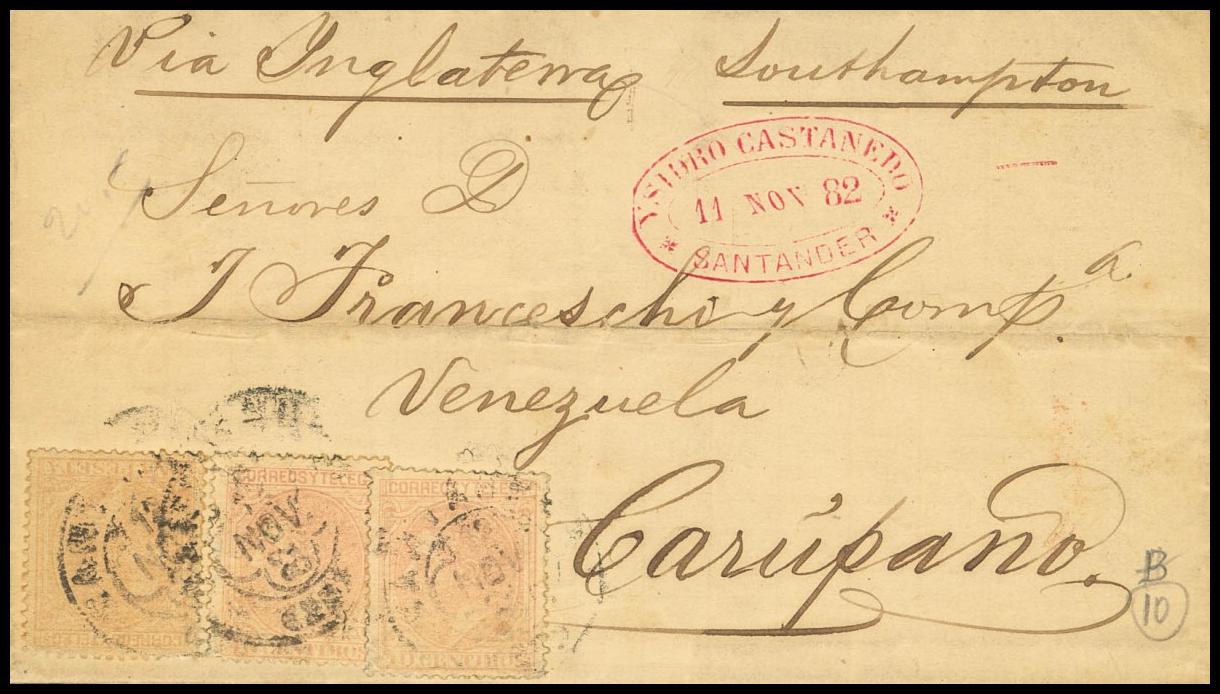 Via Inglaterra Southampton
YSIDRO CASTANEDO
11 NOV 82
* SANTANDER *
Señores D
J Franceschi y Comp.a
Venezuela
Carúpano.
CORREOS Y TELEG
CORREOS Y TELEG
NOV
NOV
B
10